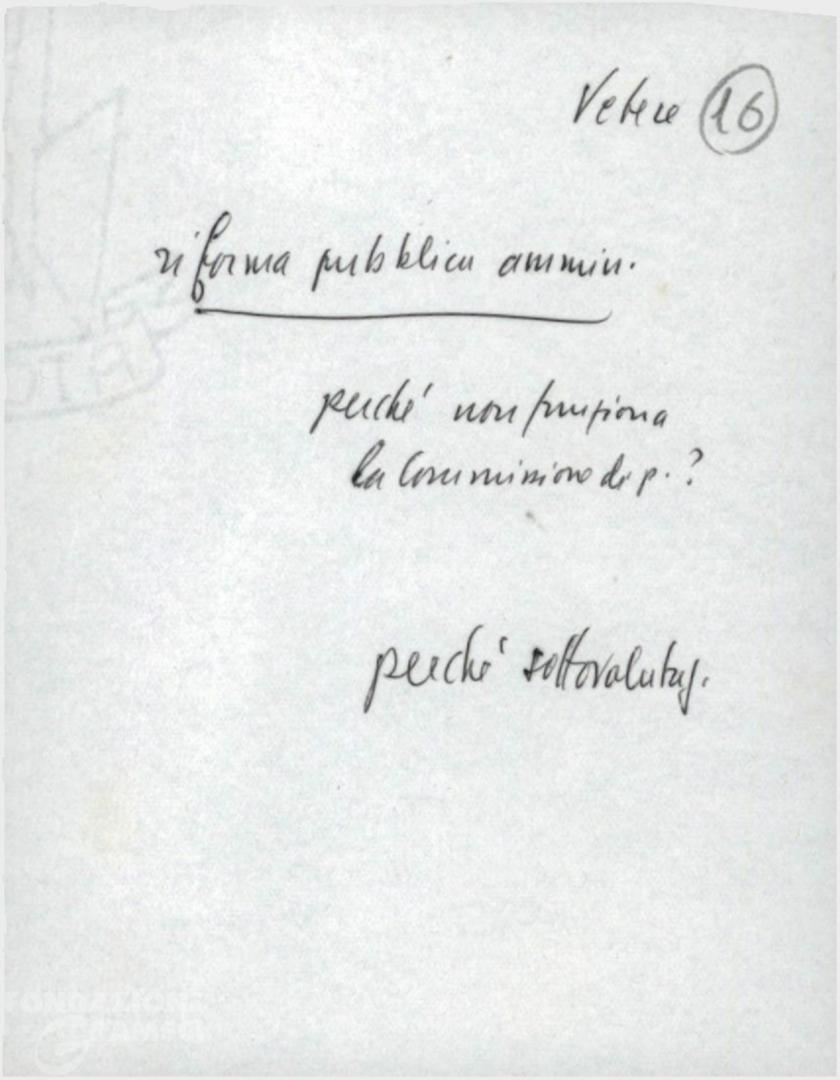 Vetere 16
riforma pubblica ammin.
perché non funziona
la Commissione di p. ?
perché sottovalutaz.
FONDAZIONE
GRAMSCI